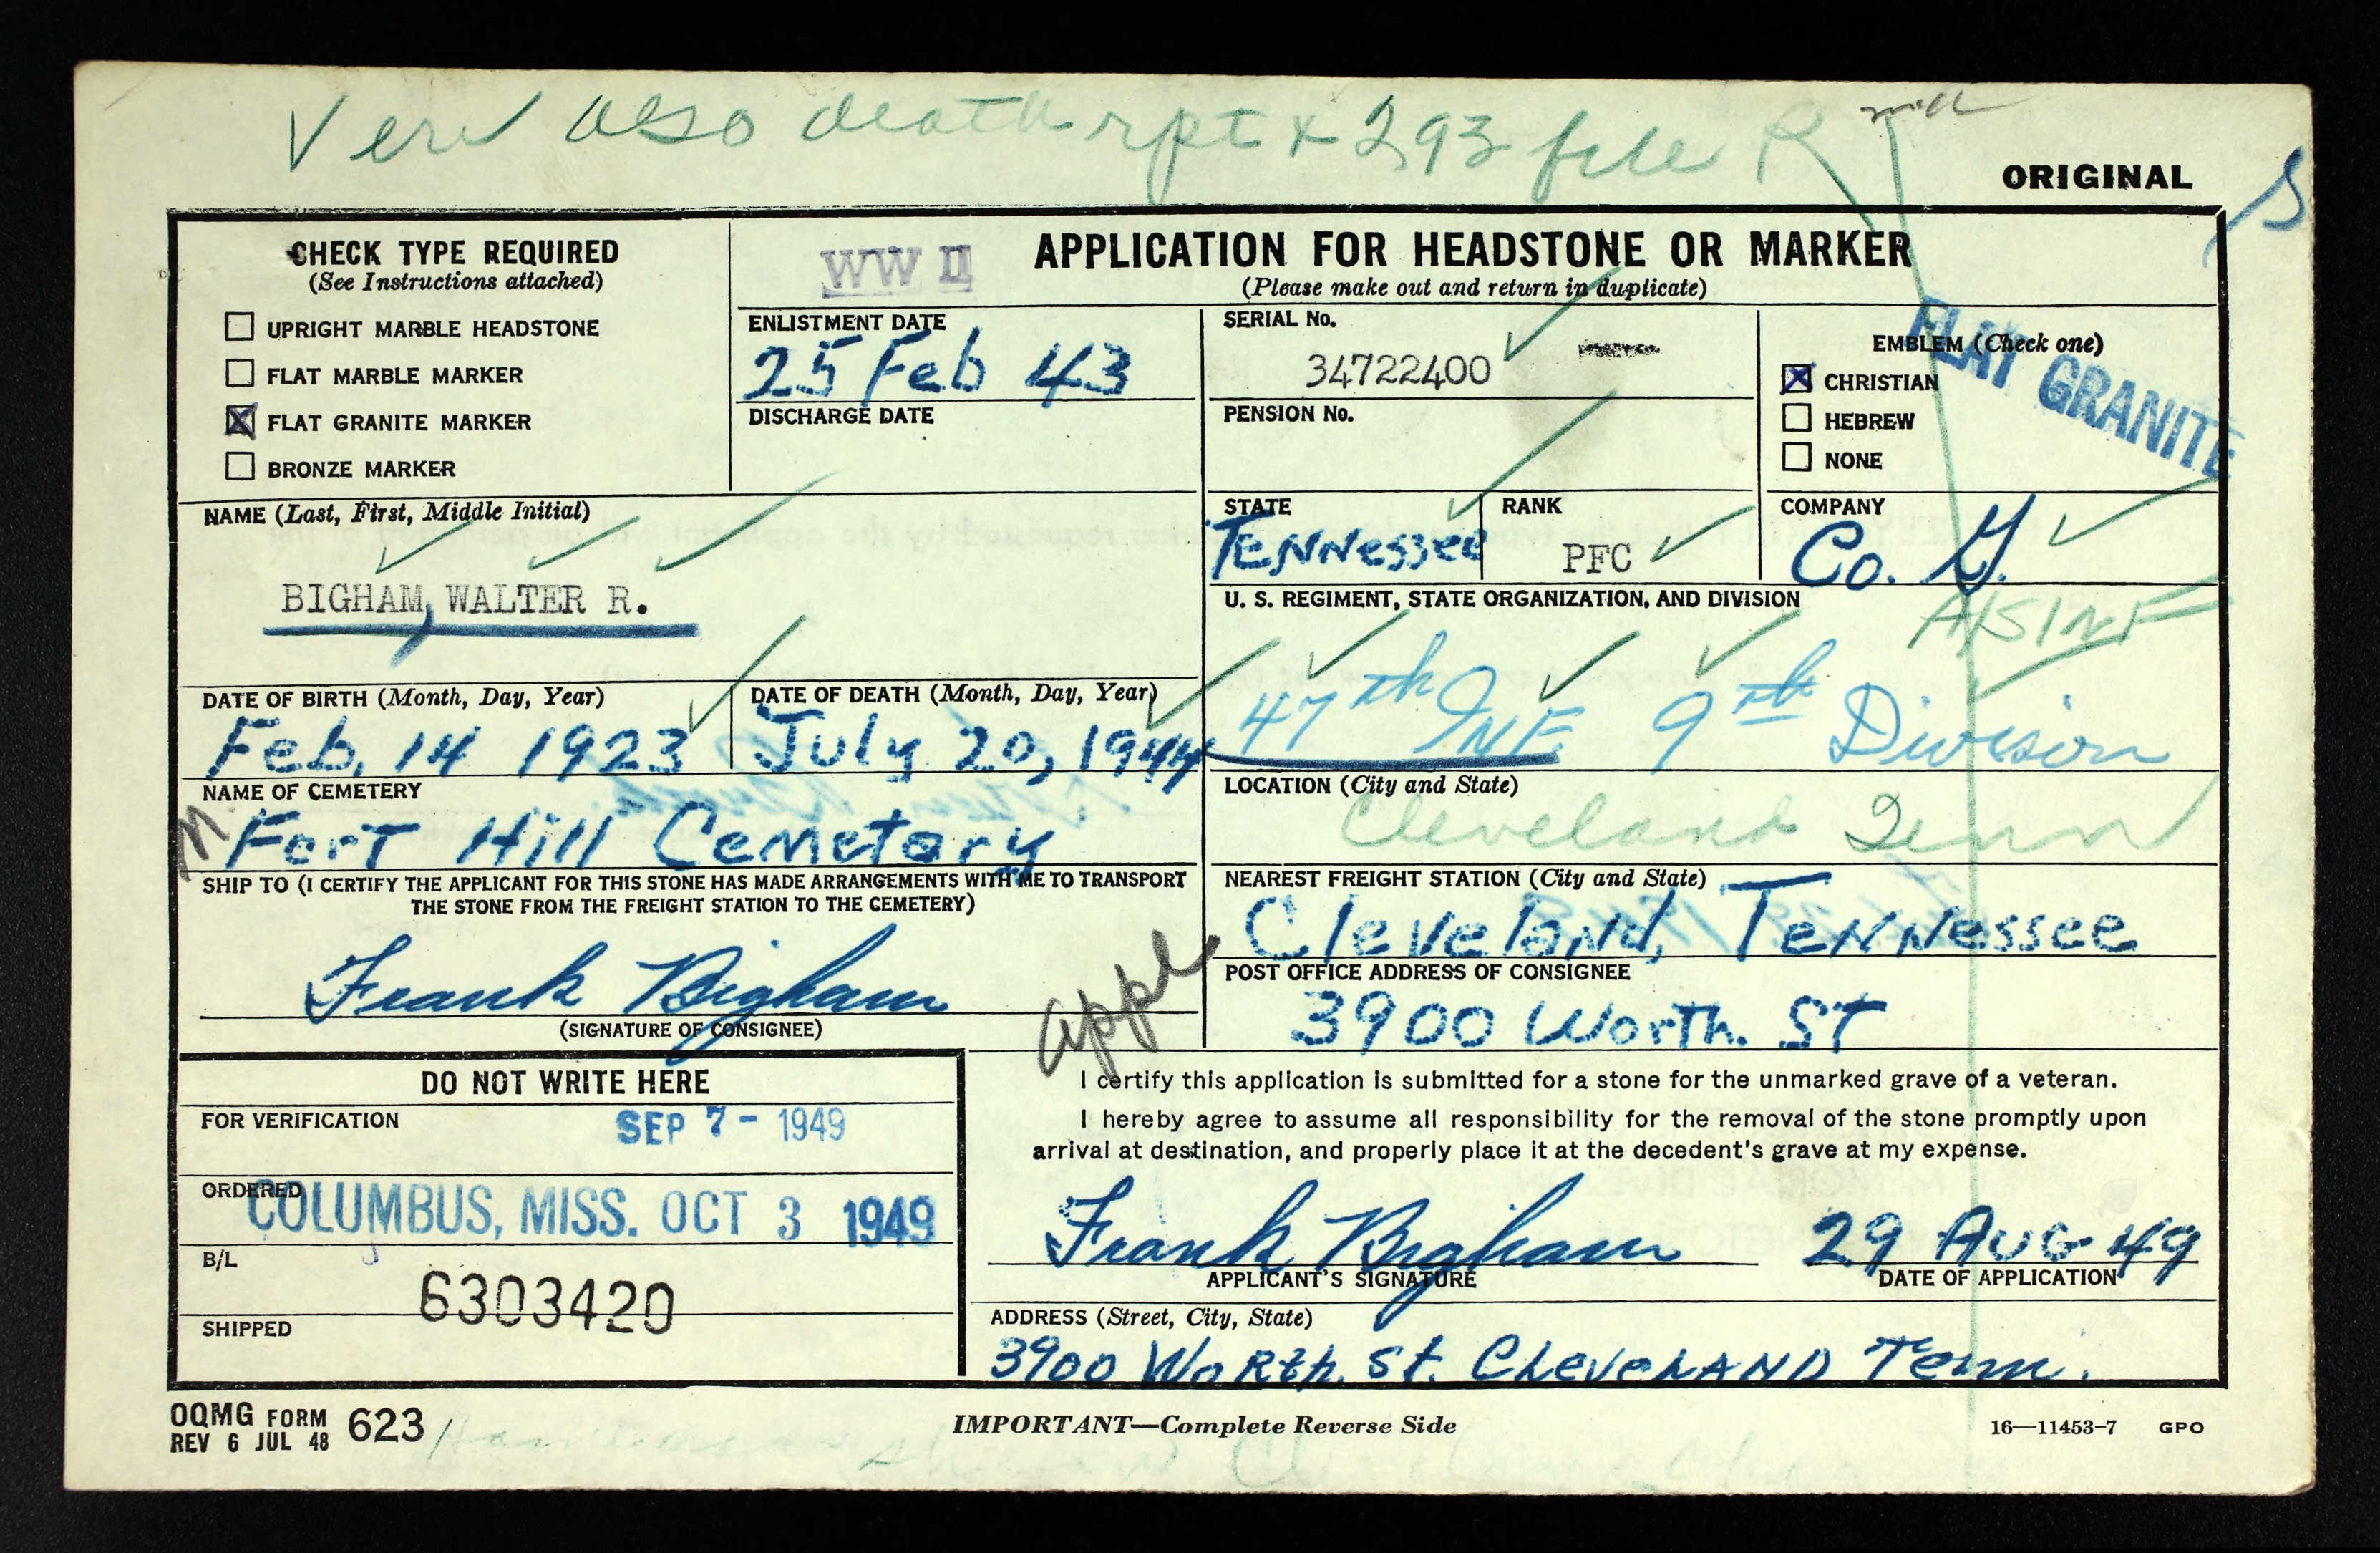 Ver also death rpt + 293 file R
ORIGINAL
S
CHECK TYPE REQUIRED
(See Instructions attached)
UPRIGHT MARBLE HEADSTONE
FLAT MARBLE MARKER
FLAT GRANITE MARKER
BRONZE MARKER
WW II
APPLICATION FOR HEADSTONE OR MARKER
(Please make out and return in duplicate)
ENLISTMENT DATE
25 Feb 43
DISCHARGE DATE
SERIAL No.
34722400
PENSION No.
EMBLEM (Check one)
CHRISTIAN
HEBREW
NONE
FLAT GRANITE
NAME (Last, First, Middle Initial)
BIGHAM, WALTER R.
STATE
Tennessee
RANK
PFC
COMPANY
Co. G.
U. S. REGIMENT, STATE ORGANIZATION, AND DIVISION
A/S INF
47th INF. 9th Division
DATE OF BIRTH (Month, Day, Year)
Feb, 14 1923
DATE OF DEATH (Month, Day, Year)
July 20, 1944
NAME OF CEMETERY
Fort Hill Cemetary
LOCATION (City and State)
Cleveland Tenn
SHIP TO (I CERTIFY THE APPLICANT FOR THIS STONE HAS MADE ARRANGEMENTS WITH ME TO TRANSPORT
THE STONE FROM THE FREIGHT STATION TO THE CEMETERY)
Frank Bigham
(SIGNATURE OF CONSIGNEE)
appl
NEAREST FREIGHT STATION (City and State)
Cleveland, Tennessee
POST OFFICE ADDRESS OF CONSIGNEE
3900 Worth. ST
DO NOT WRITE HERE
FOR VERIFICATION
SEP 7 - 1949
ORDERED
COLUMBUS, MISS. OCT 3 1949
B/L
6303420
SHIPPED
I certify this application is submitted for a stone for the unmarked grave of a veteran.
I hereby agree to assume all responsibility for the removal of the stone promptly upon
arrival at destination, and properly place it at the decedent's grave at my expense.
Frank Bigham 29 AUG 49
APPLICANT'S SIGNATURE
DATE OF APPLICATION
ADDRESS (Street, City, State)
3900 Worth. St. Cleveland Tenn.
OQMG FORM 623
REV 6 JUL 48
IMPORTANT—Complete Reverse Side
16—11453-7 GPO